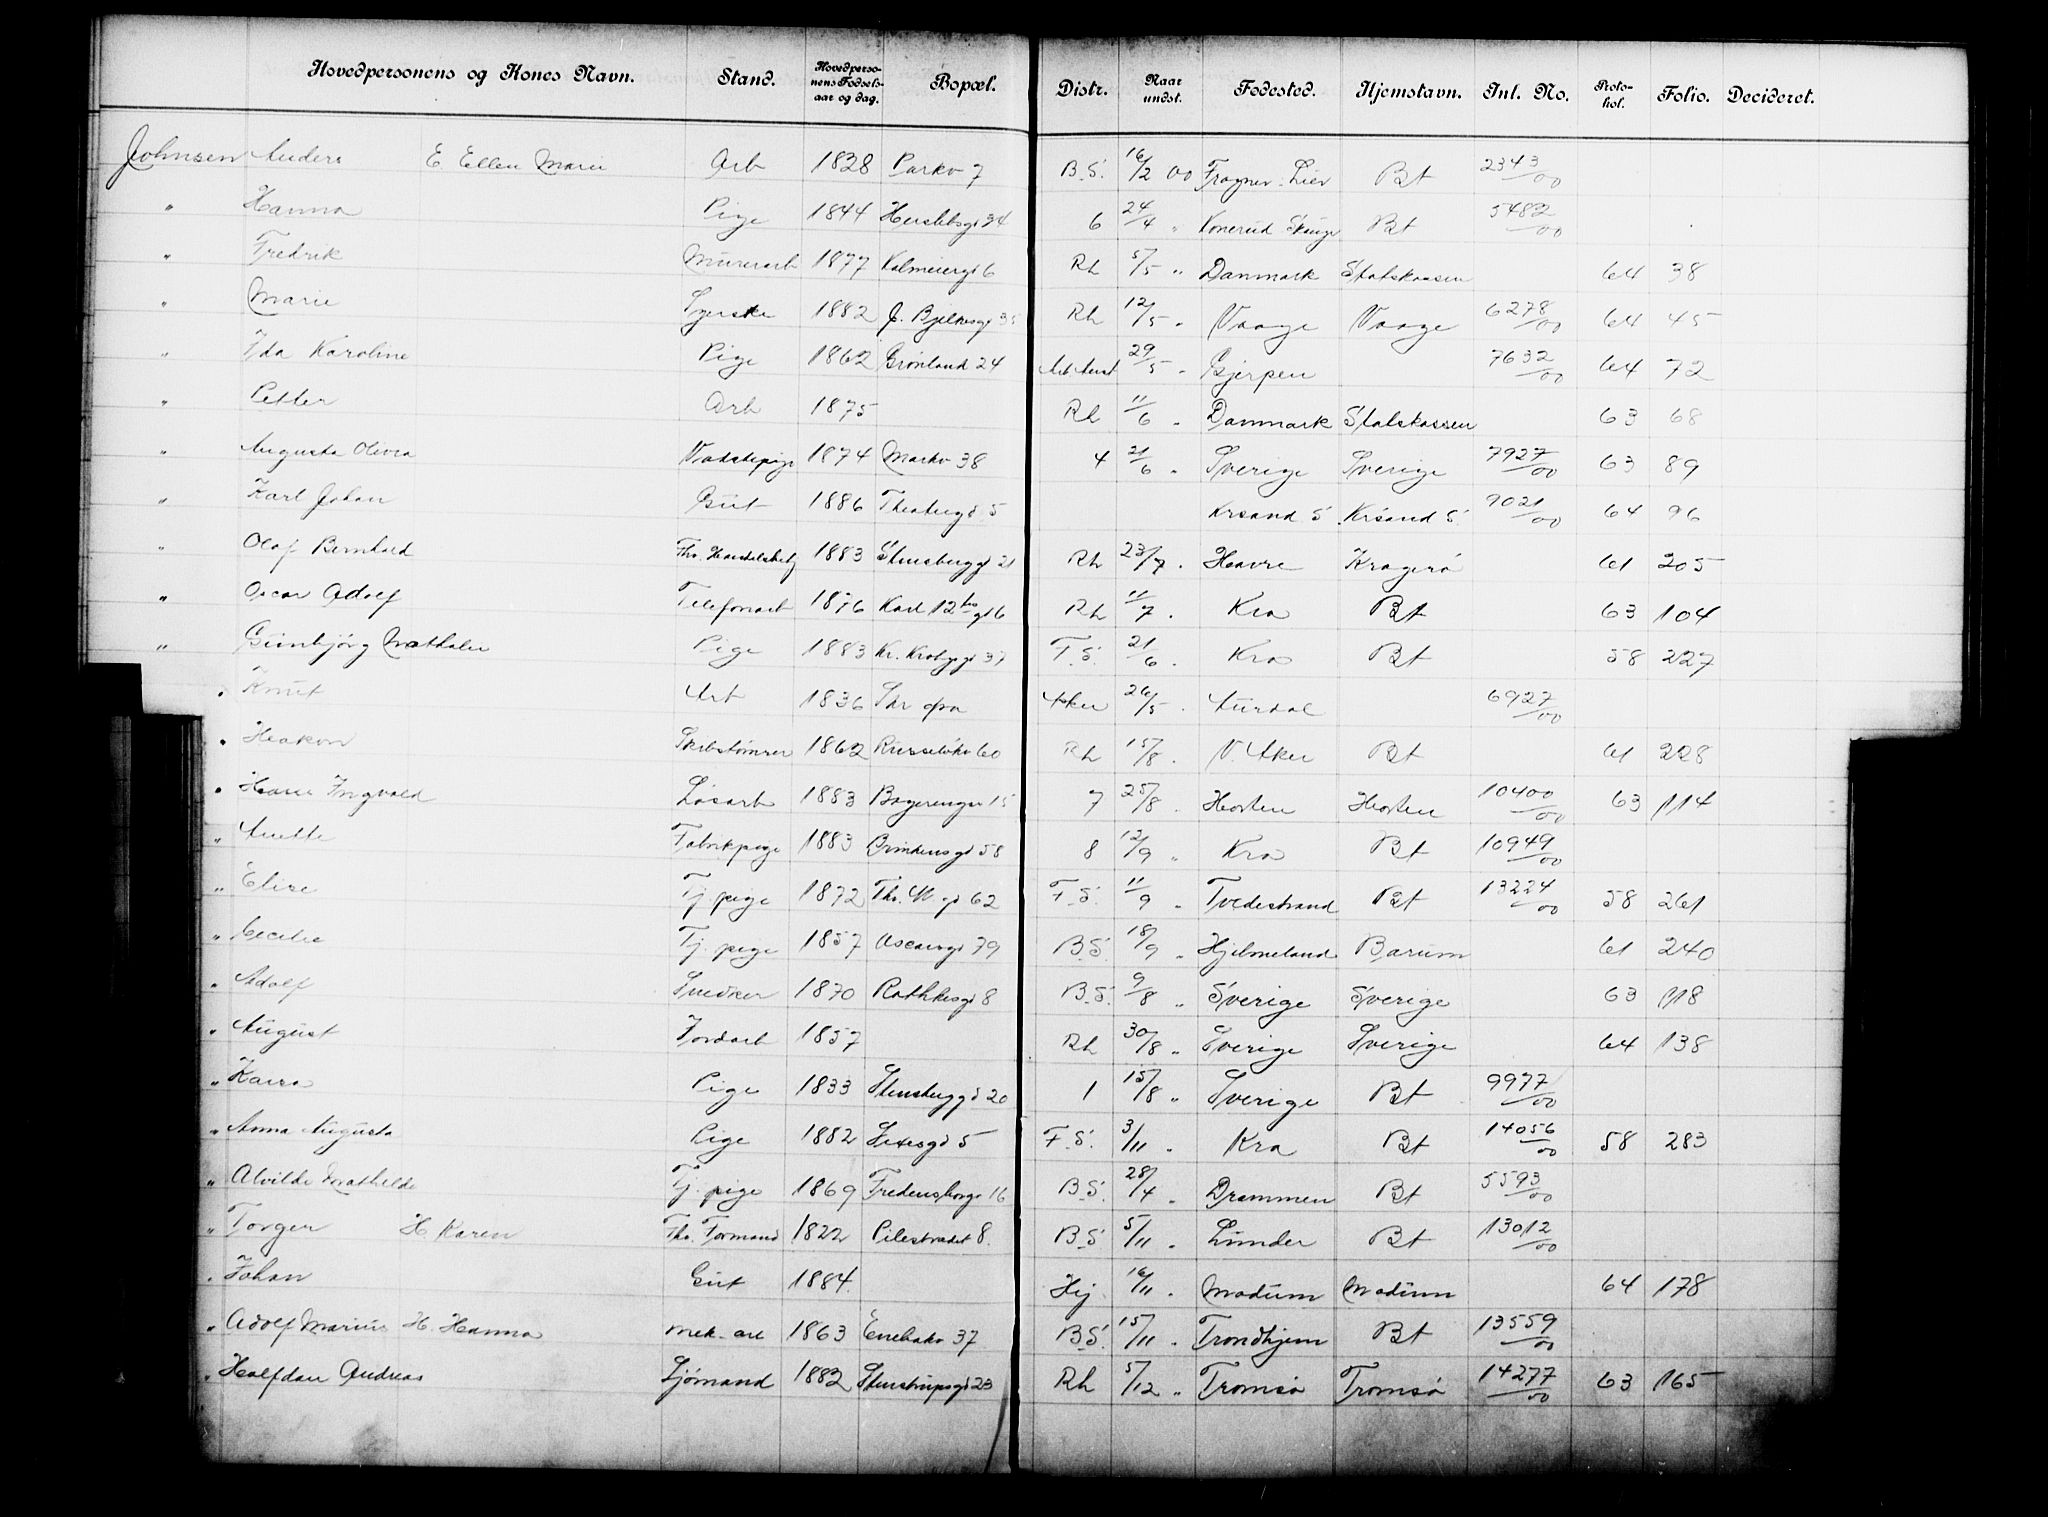 Hovedpersonens og Kones Navn. Stand. Hovedpersonens Fødselsaar og dag. Bopæl. Distr. Naar undst. Fødested. Hjemstavn. Inl. No. Protokol. Folio. Decideret.
Johnsen Anders E. Ellen Marie Arb 1828 Parkv 7 B.S. 16/2 00 Fragner Lier Bt 2343/00
" Hanna Pige 1844 Herslebsgd 34 6 24/4 " Konerud Bt 5482/00
" Fredrik Murerarb 1877 Kalmeiergd 6 Rh 5/5 " Danmark Statskassen 64 38
" Marie Syerske 1882 J. Bjelkesgd 35 Rh 12/5 " Vaage Vaage 6278/00 64 45
" Ida Karoline Pige 1862 Grønland 24 29/5 " Gjerpen 7632/00 64 72
" Petter Arb 1875 Rh 11/6 " Danmark Statskassen 63 68
" Augusta Olivia Vadskepige 1874 Markv 38 4 21/6 " Sverige Sverige 7927/00 63 89
" Karl Johan Gut 1886 Theatergd 5 Krsand S. Krsand S. 9021/00 64 96
" Olaf Bernhard Fhv. Handelsbetj 1883 Stensberggd 21 Rh 23/7 " Havre Kragerø 61 205
" Oscar Adolf Telefonarb 1876 Karl 12tes gd 6 Rh 11/7 " Kra Bt 63 104
" Gunbjørg Mathalie Pige 1883 Kr. Krohgsgd 37 F.S. 21/6 " Kra Bt 58 227
" Knut Arb 1836 Aker 26/5 " Aurdal 6927/00
" Haakon Skibstømrer 1862 Ruseløkv 60 Rh 15/8 " V. Aker Bt 61 228
" Hans Ingvald Løsarb 1883 7 25/8 " Horten Horten 10400/00 63 114
" Anette Fabrikpige 1883 58 8 12/9 " Kra Bt 10949/00
" Elise Tj. pige 1872 Th. M. gd 62 F.S. 11/9 " Tvedestrand Bt 13224/00 58 261
" Cecilie Tj. pige 1857 Oscarsgd 79 B.S. 18/9 " Hjelmeland Bærum 61 240
" Adolf Snedker 1870 Rathkesgd 8 B.S. 9/8 " Sverige Sverige 63 118
" August Jordarb 1857 Rh 30/8 " Sverige Sverige 64 138
" Kaisa Pige 1833 Stensberggd 20 1 15/8 " Sverige Bt 9977/00
" Anna Augusta Pige 1882 Sexesgd 5 F.S. 3/11 " Kra Bt 14056/00 58 283
" Alvilde Mathilde Tj. pige 1869 Fredensborgv 16 B.S. 28/4 " Drammen Bt 5593/00
" Torger H. Karen Fhv. Formand 1822 Pilestrædet 8. B.S. 5/11 " Lunder Bt 13012/00
" Johan Gut 1884. Hj 16/11 " Modum Modum 64 178
" Adolf Marius H. Hanna mek. arb 1863 Enebakv 37 B.S. 15/11 " Trondhjem Bt 13559/00
" Halfdan Andreas Sjømand 1882 Stenstrupsgd 23 Rh 5/12 " Tromsø Tromsø 14277/00 63 165